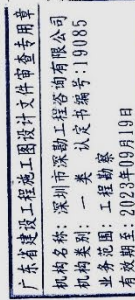 广东省建设工程施工图设计文件审查专用章
机构名称:深圳市深勘工程咨询有限公司
机构类别:一类 认定书编号:19085
业务范围:工程勘察
有效期至:2023年09月19日